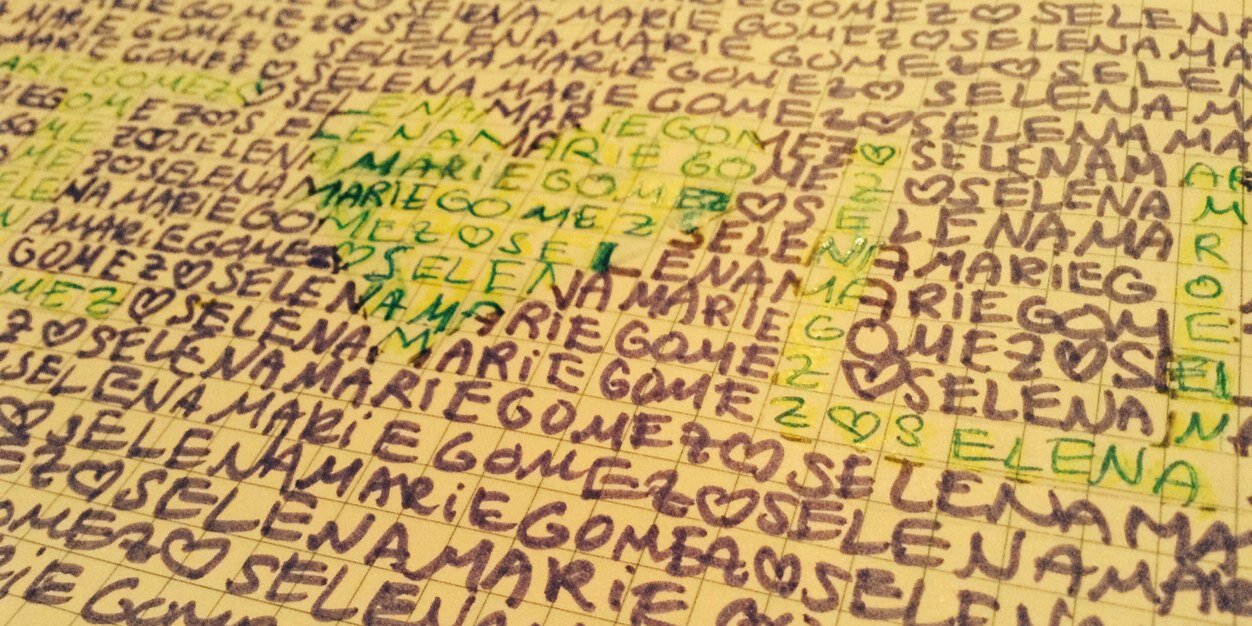 EGOMEZ♡SELEN
GOMEZ♡SELENAMARIEGOMEZ♡SELENAMA
MARIE GOMEZ♡SELENAMARIE GOMEZ♡SELEN
MARIE GOMEZ♡SELENAMARIE GOMEZ♡SELENAM
ARIEGOMEZ♡SELENAMARIEGOMEZ♡SELENAMA
EGOMEZ♡SELENAMARIEGOMEZ♡SELENAM
GOMEZ♡SELENAMARIEGOMEZ♡SELENA
MEZ♡SELENAMARIEGOMEZ♡SELENAMA
LENAMARIEGOMEZ♡SELENAMARIEG
NAMARIEGOMEZ♡SELENAMARIEGOM
GOMEZ♡SELENAMARIEGOMEZ♡SE
MEZ♡SELENAMARiEGOMEZ♡SELENA
Z♡SELENAMARiEGOMEZ♡SELENA
SELENAMARIEGOMEZ♡SELENAMA
♡SELENAMARiEGOMEZ♡SELENAMAR
EZ♡SELENAMARiEGOMEZ♡SELEN
OMEZ♡SELENAMARiE
RiEGOM